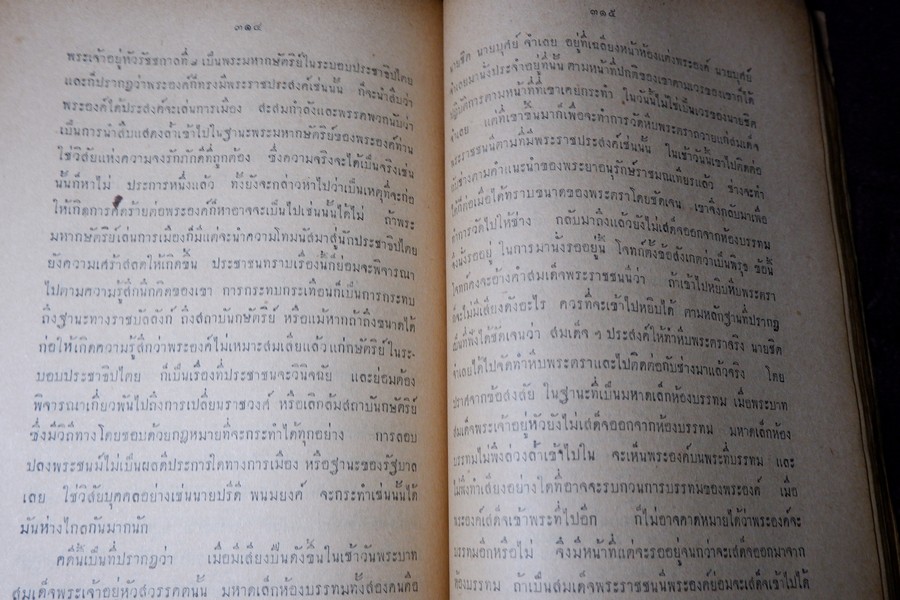 ๓๑๔
พระเจ้าอยู่หัวรัชกาลที่ ๘ เป็นพระมหากษัตริย์ในระบอบประชาธิปไตย
และก็ปรากฏว่าพระองค์ก็ทรงมีพระราชประสงค์เช่นนั้น ก็จะนำสืบว่า
พระองค์ได้ประสงค์จะเล่นการเมือง สะสมกำลังและพรรคพวกนับว่า
เป็นการนำสืบแสดงล้ำเข้าไปในฐานะพระมหากษัตริย์ของพระองค์ท่าน
ใช่วิสัยแห่งความจงรักภักดีที่ถูกต้อง ซึ่งความจริงจะได้เป็นจริงเช่น
นั้นก็หาไม่ ประการหนึ่งแล้ว ทั้งยังจะกล่าวห่าไปว่าเป็นเหตุที่จะก่อ
ให้เกิดการคิดร้ายต่อพระองค์ก็หาอาจจะเป็นไปเช่นนั้นได้ไม่ ถ้าพระ
มหากษัตริย์เล่นการเมืองก็มีแต่จะนำความโทมนัสมาสู่นักประชาธิปไตย
ยังความเศร้าสลดให้เกิดขึ้น ประชาชนทราบเรื่องนั้นก็ย่อมจะพิจารณา
ไปตามความรู้สึกนึกคิดของเขา การกระทบกระเทือนก็เป็นการกระทบ
ถึงฐานะทางราชบัลลังก์ ถึงสถาบันกษัตริย์ หรือแม้หากถ้าถึงขนาดได้
ก่อให้เกิดความรู้สึกว่าพระองค์ไม่เหมาะสมเสียแล้วแก่กษัตริย์ในระ-
บอบประชาธิปไตย ก็เป็นเรื่องที่ประชาชนจะวินิจฉัย และย่อมต้อง
พิจารณาเกี่ยวพันไปถึงการเปลี่ยนราชวงศ์ หรือเลิกล้มสถาบันกษัตริย์
ซึ่งมีวิถีทางโดยชอบด้วยกฎหมายที่จะกระทำได้ทุกอย่าง การลอบ
ปลงพระชนม์ไม่เป็นผลดีประการใดทางการเมือง หรือฐานะของรัฐบาล
เลย ใช่วิสัยบุคคลอย่างเช่นนายปรีดี พนมยงค์ จะกระทำเช่นนั้นได้
มันห่างไกลกันมากนัก
คดีนี้เป็นที่ปรากฏว่า เมื่อมีเสียงปืนดังขึ้นในเช้าวันพระบาท
สมเด็จพระเจ้าอยู่หัวสวรรคตนั้น มหาดเล็กห้องบรรทมทั้งสองคนคือ
๓๑๕
นายชิต นายบุศย์ จำเลย อยู่ที่เฉลียงหน้าห้องแต่งพระองค์ นายบุศย์
จำเลยมานั่งประจำอยู่ที่นั้น ตามหน้าที่ปกติของเขาตามเวรของเขาก็ได้
ปฏิบัติการตามหน้าที่ที่เขาเคยกระทำ ในวันนั้นไม่ใช่เป็นเวรของนายชิต
จำเลย แต่ที่เขาขึ้นมาก็เพื่อจะทำการวัดหีบพระตราถวายแก่สมเด็จ
พระราชชนนีตามที่มีพระราชประสงค์เช่นนั้น ในเช้าวันนั้นเขาไปติดต่อ
กับช่างตามคำแนะนำของพระยาอนุรักษ์ราชมณเฑียรแล้ว ช่างจะทำ
ให้ก็ต่อเมื่อได้ทราบขนาดของพระตราโดยชัดเจน เขาจึงกลับมาเพื่อ
ทำการวัดไปให้ช่าง กลับมาถึงแล้วยังไม่เสด็จออกจากห้องบรรทม
จึงนั่งรออยู่ ในการมานั่งรออยู่นี้ โจทก์ตั้งข้อสังเกตว่าเป็นพิรุธ ข้อนี้
โจทก์คงจะอ้างคำสมเด็จพระราชชนนีว่า ถ้าเข้าไปหยิบหีบพระตรา
ก็จะไม่มีเสียงดังอะไร ควรที่จะเข้าไปหยิบได้ ตามหลักฐานที่ปรากฏ
เป็นที่ฟังได้ชัดเจนว่า สมเด็จ ฯ ประสงค์ให้ทำหีบพระตราจริง นายชิต
จำเลยได้ไปจัดทำหีบพระตราและไปติดต่อกับช่างมาแล้วจริง โดย
ปราศจากข้อสงสัย ในฐานะที่เป็นมหาดเล็กห้องบรรทม เมื่อพระบาท
สมเด็จพระเจ้าอยู่หัวยังไม่เสด็จออกจากห้องบรรทม มหาดเล็กห้อง
บรรทมไม่พึงล่วงล้ำเข้าไปใน จะเห็นพระองค์บนพระที่บรรทม และ
ไม่พึงทำเสียงอย่างใดที่อาจจะรบกวนการบรรทมของพระองค์ เมื่อ
พระองค์เสด็จเข้าพระที่ไปอีก ก็ไม่อาจคาดหมายได้ว่าพระองค์จะ
บรรทมอีกหรือไม่ จึงมีหน้าที่แต่จะรออยู่จนกว่าจะเสด็จออกมาจาก
ห้องบรรทม ถ้าเป็นสมเด็จพระราชชนนีพระองค์ย่อมจะเสด็จเข้าไปได้